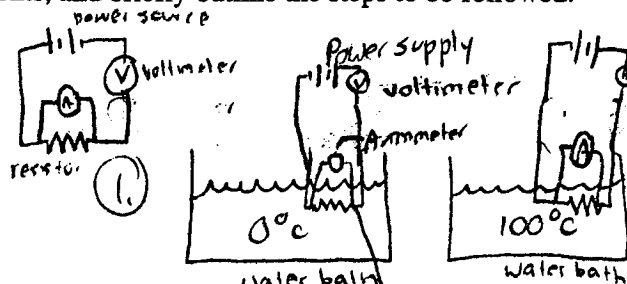 and briefly outline the steps to be followed.
power source
V voltmeter
A
resistor
1.
Power supply
V voltimeter
Ammeter
0°C
water bath
A
100°C
water bath